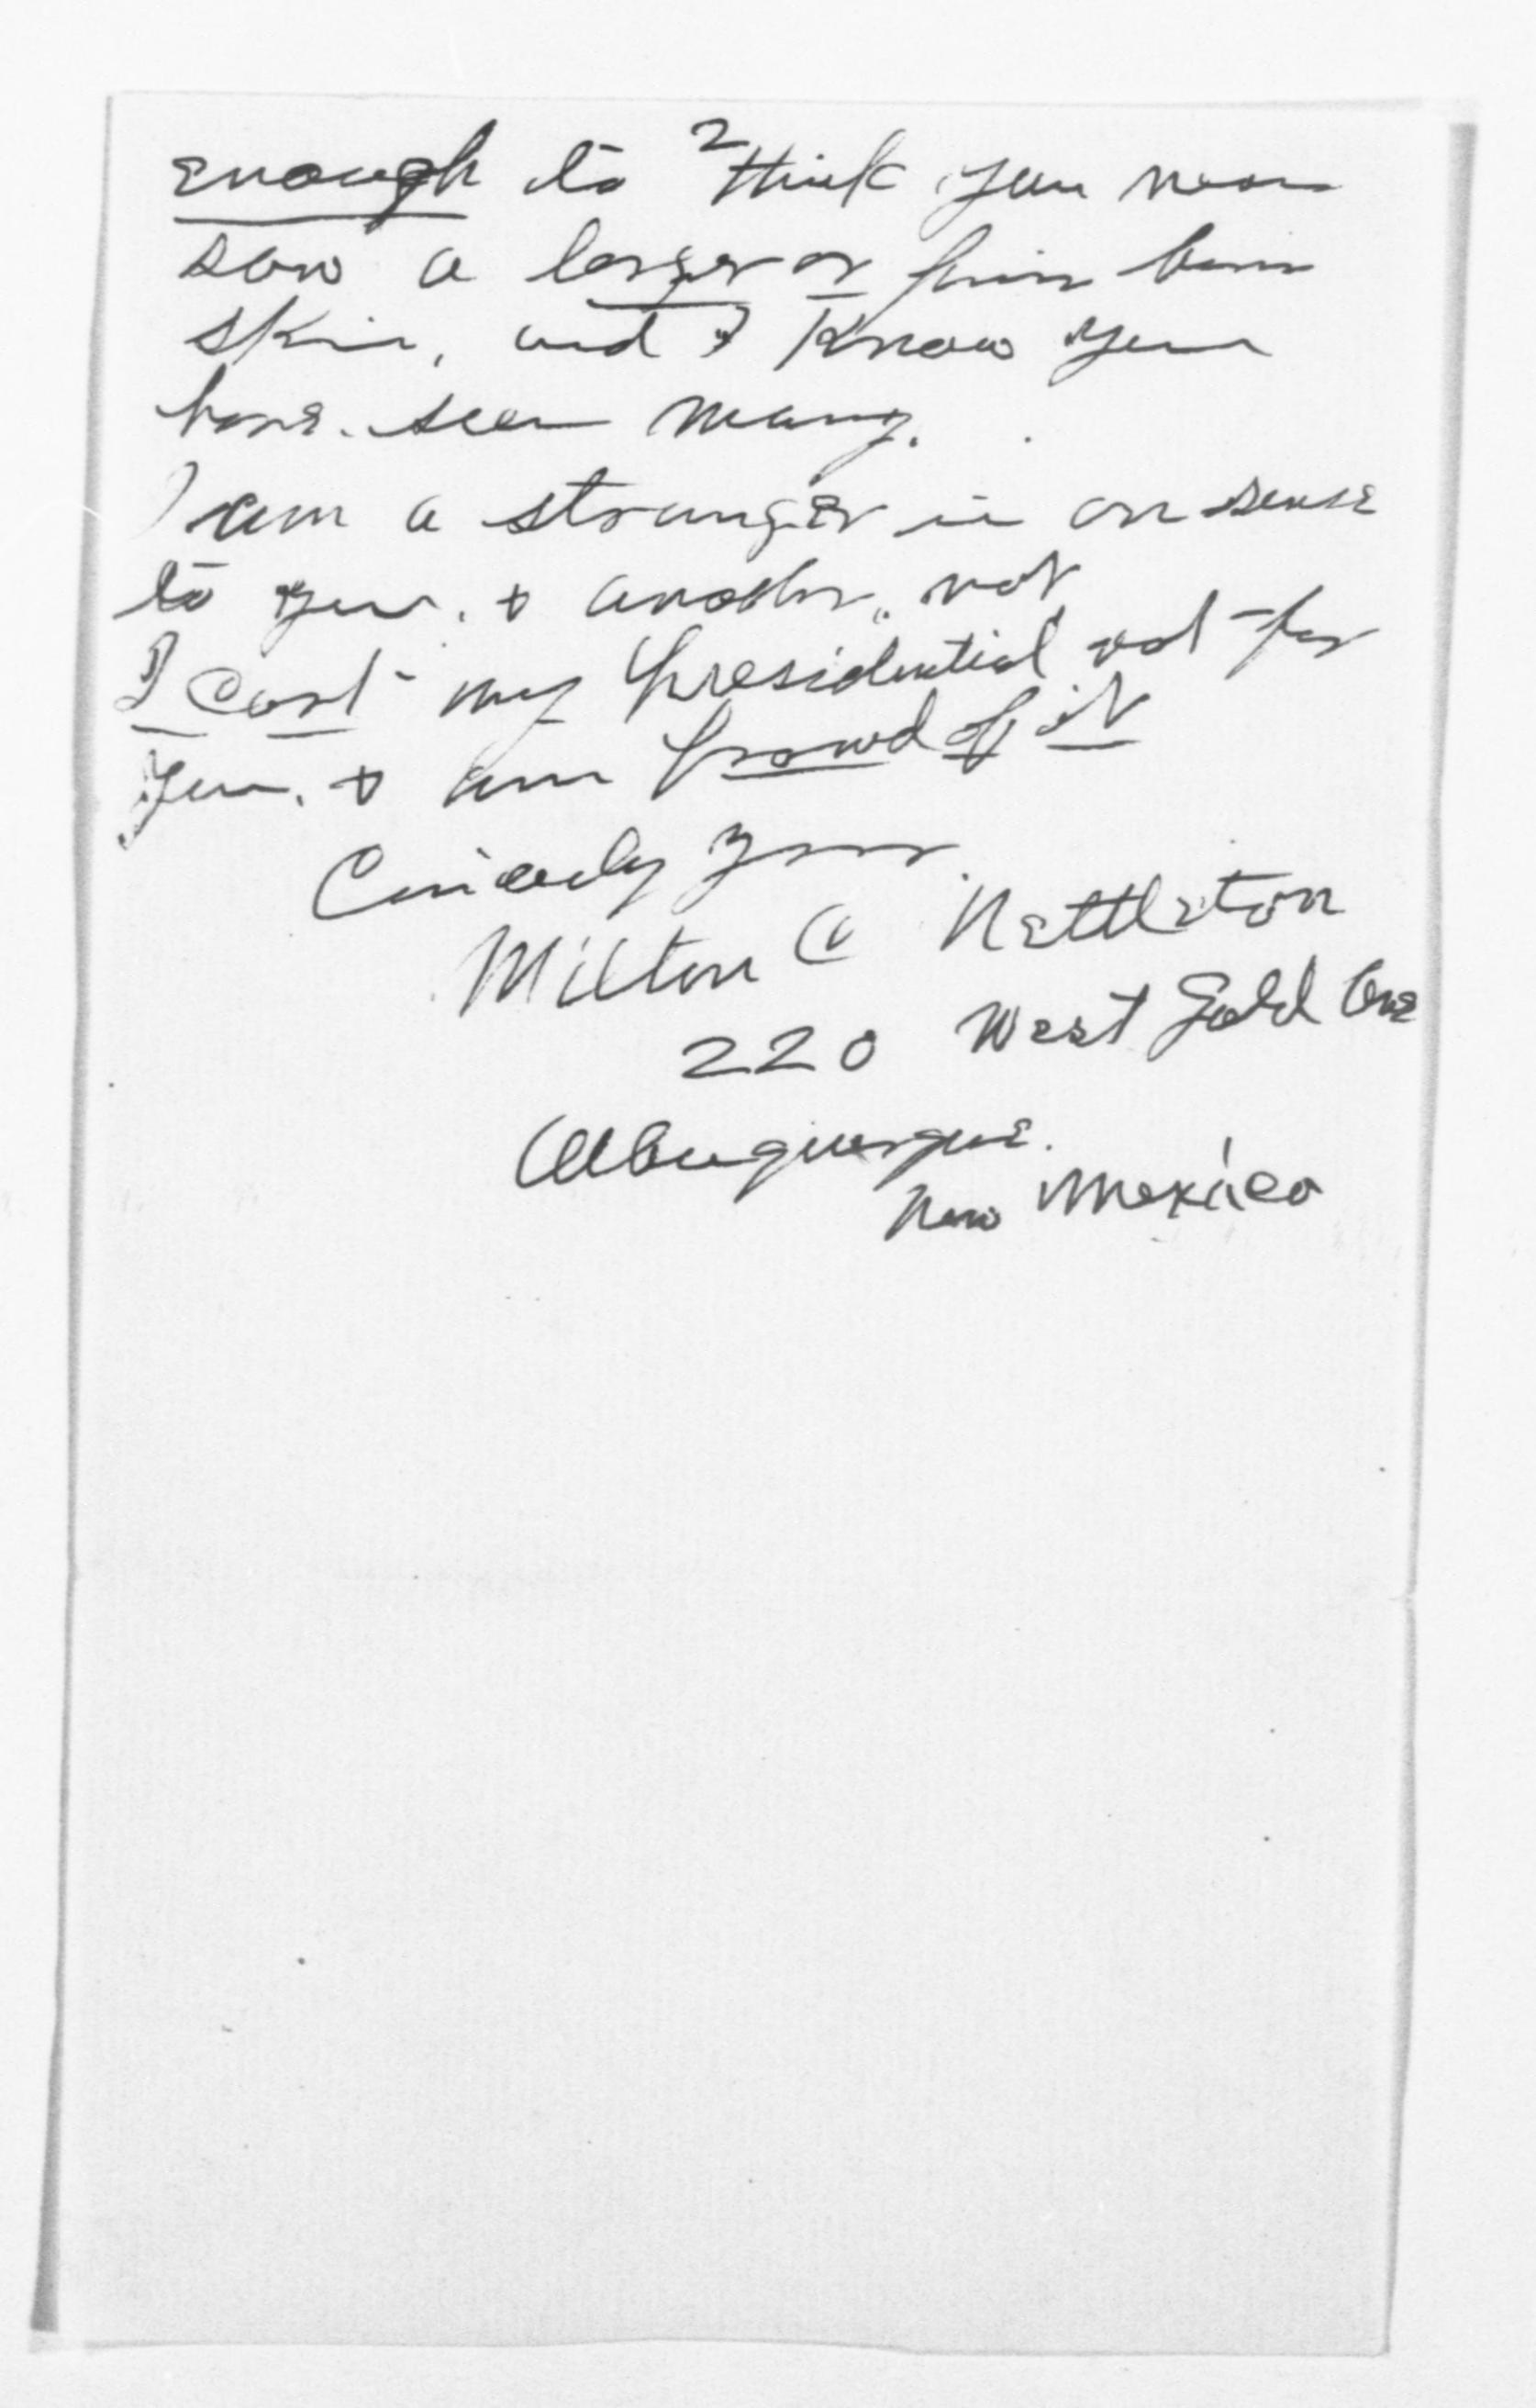 2
enough to think you never
saw a larger or finer bear
skin, and I know you
have seen many.
I am a stranger in on sense
to you. & another, not
I cast my presidential vot for
you. & am prowd of it
Cincerely yours
Milton C Nettleton
220 West Gold Ave
Albuquerque.
New Mexico